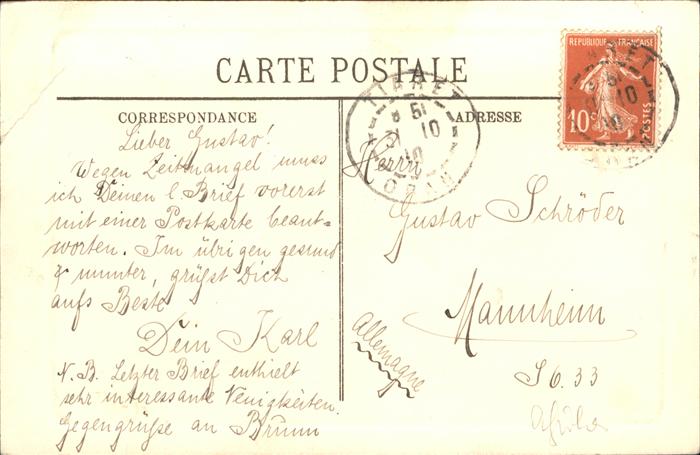 CARTE POSTALE
CORRESPONDANCE
Lieber Gustav!
Wegen Zeitmangel muss
ich Deinen l. Brief vorerst
mit einer Postkarte beant=
worten. Im übrigen gesund
& munter, grüßt Dich
aufs Beste
Dein Karl
N.B. Letzter Brief enthielt
sehr interessante Neuigkeiten.
Gegengrüße an Brunn
ADRESSE
Herrn
Gustav Schröder
Mannheim
Allemagne
S 6. 33
REPUBLIQUE FRANÇAISE
10c
POSTES
TIARET
ORAN